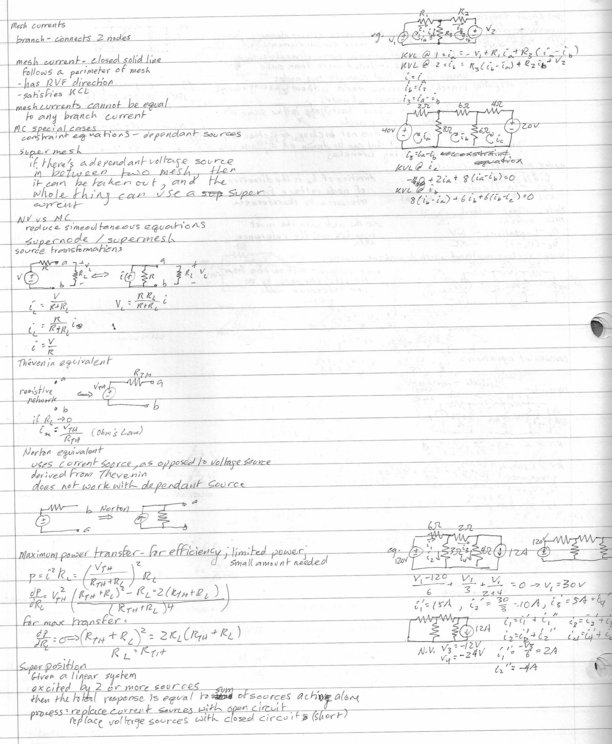 Mesh currents
branch - connects 2 nodes
mesh current - closed solid line
follows a perimeter of mesh
- has RVF direction
- satisfies KCL
mesh currents cannot be equal
to any branch current
MC special cases
constraint equations - dependant sources
supermesh
if there's a dependant voltage source
in between two mesh, then
it can be taken out, and the
whole thing can use a super
current
NV vs MC
reduce simeoultaneous equations
supernode / supermesh
source transformations
V R a + R_L V_L - b ⇔ i R a b R_L + V_L -
i_L = V / (R+R_L)
V_L = R R_L / (R+R_L) i
i_L = R / (R+R_L) i
i = V/R
Thévenin equivalent
resistive network a b ⇔ V_TH R_TH a b
if R_L → 0
i = V_TH / R_TH (Ohm's Law)
Norton equivalent
uses current source, as opposed to voltage source
derived from Thevenin
does not work with dependant source
b Norton a
a ⇒ b
Maximum power transfer - for efficiency; limited power,
small amount needed
p = i² R_L = (V_TH / (R_TH+R_L))² R_L
dp/dR_L = V_TH² ((R_TH+R_L)² - R_L 2(R_TH+R_L) / (R_TH+R_L)⁴)
For max transfer:
dp/dR_L = 0 ⇒ (R_TH+R_L)² = 2R_L(R_TH+R_L)
R_L = R_TH
Superposition
Given a linear system
excited by 2 or more sources
then the total response is equal to sum of sources acting alone
process: replace current sources with open circuit
replace voltage sources with closed circuits (short)
eg. V_1 R_1 R_3 R_2 V_2 i_a i_b
KVL @ 1 = i_a = -V_1 + R_1 i_a + R_3(i_a - i_b)
KVL @ 2 = i_b = R_3(i_b - i_a) + R_2 i_b + V_2
i_1 = i_a
i_2 = i_b
i_3 = i_a - i_b
40V 2Ω 8Ω 6Ω 6Ω 4Ω 20V i_a i_b i_c
i_3 = i_a - i_b constraint
equation
KVL @ i_a
-40 + 2i_a + 8(i_a - i_b) = 0
KVL @ i_b
8(i_b - i_a) + 6i_b + 6(i_b - i_c) = 0
eg. 120V 6Ω 2Ω 3Ω 4Ω 12A 120V
(V_1 - 120)/6 + V_1/3 + V_1/(2+4) = 0 → V_1 = 30V
i_1' = 15A, i_2' = 30/3 = 10A, i_3' = 5A = i_4'
12A i_1 = i_1' + i_1'' i_3 = i_3' + i_3''
i_2 = i_2' + i_2'' i_4 = i_4' + i_4''
N.V. V_3 = -12V
V_4 = -24V
i_1'' = -V_3/6 = 2A
i_2'' = -4A